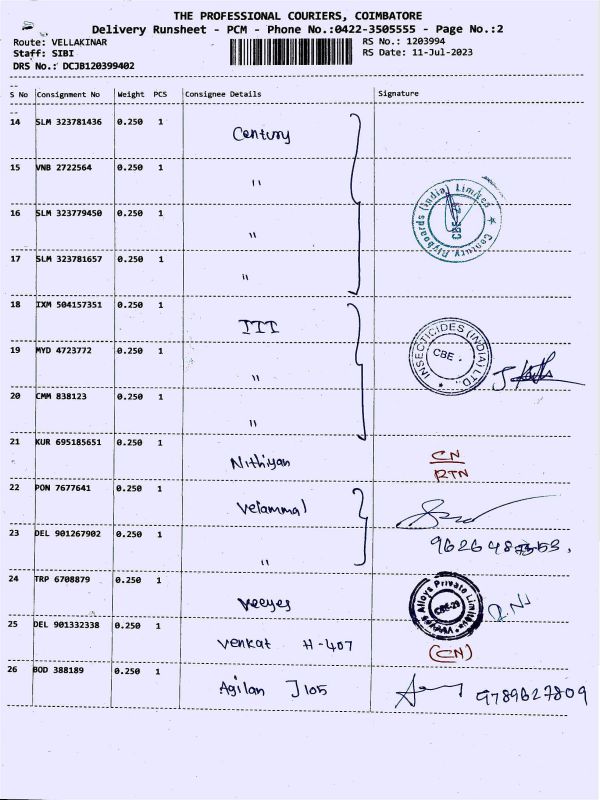 THE PROFESSIONAL COURIERS, COIMBATORE
Delivery Runsheet - PCM - Phone No.:0422-3505555 - Page No.:2
Route: VELLAKINAR
Staff: SIBI
DRS No.: DCJB120399402
RS No.: 1203994
RS Date: 11-Jul-2023
S No Consignment No Weight PCS Consignee Details Signature
14 SLM 323781436 0.250 1 Century
15 VNB 2722564 0.250 1 "
16 SLM 323779450 0.250 1 "
17 SLM 323781657 0.250 1 "
Century Plyboards (India) Limited
CBE-29
18 IXM 504157351 0.250 1 III
19 MYD 4723772 0.250 1 "
20 CMM 838123 0.250 1 "
INSECTICIDES (INDIA) LTD.,
CBE.
21 KUR 695185651 0.250 1 Nithiyan CN
RTN
22 PON 7677641 0.250 1 Velammal
23 DEL 901267902 0.250 1 "
24 TRP 6708879 0.250 1 Veeyes
Alloys Private Limited
CBE-29
25 DEL 901332338 0.250 1 Venkat H-407 (CN)
26 BOD 388189 0.250 1 Agilan J105 9789627809